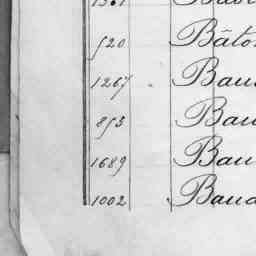 520 Bâto
1267 Bau
853 Bau
1689 Bau
1002 Baud